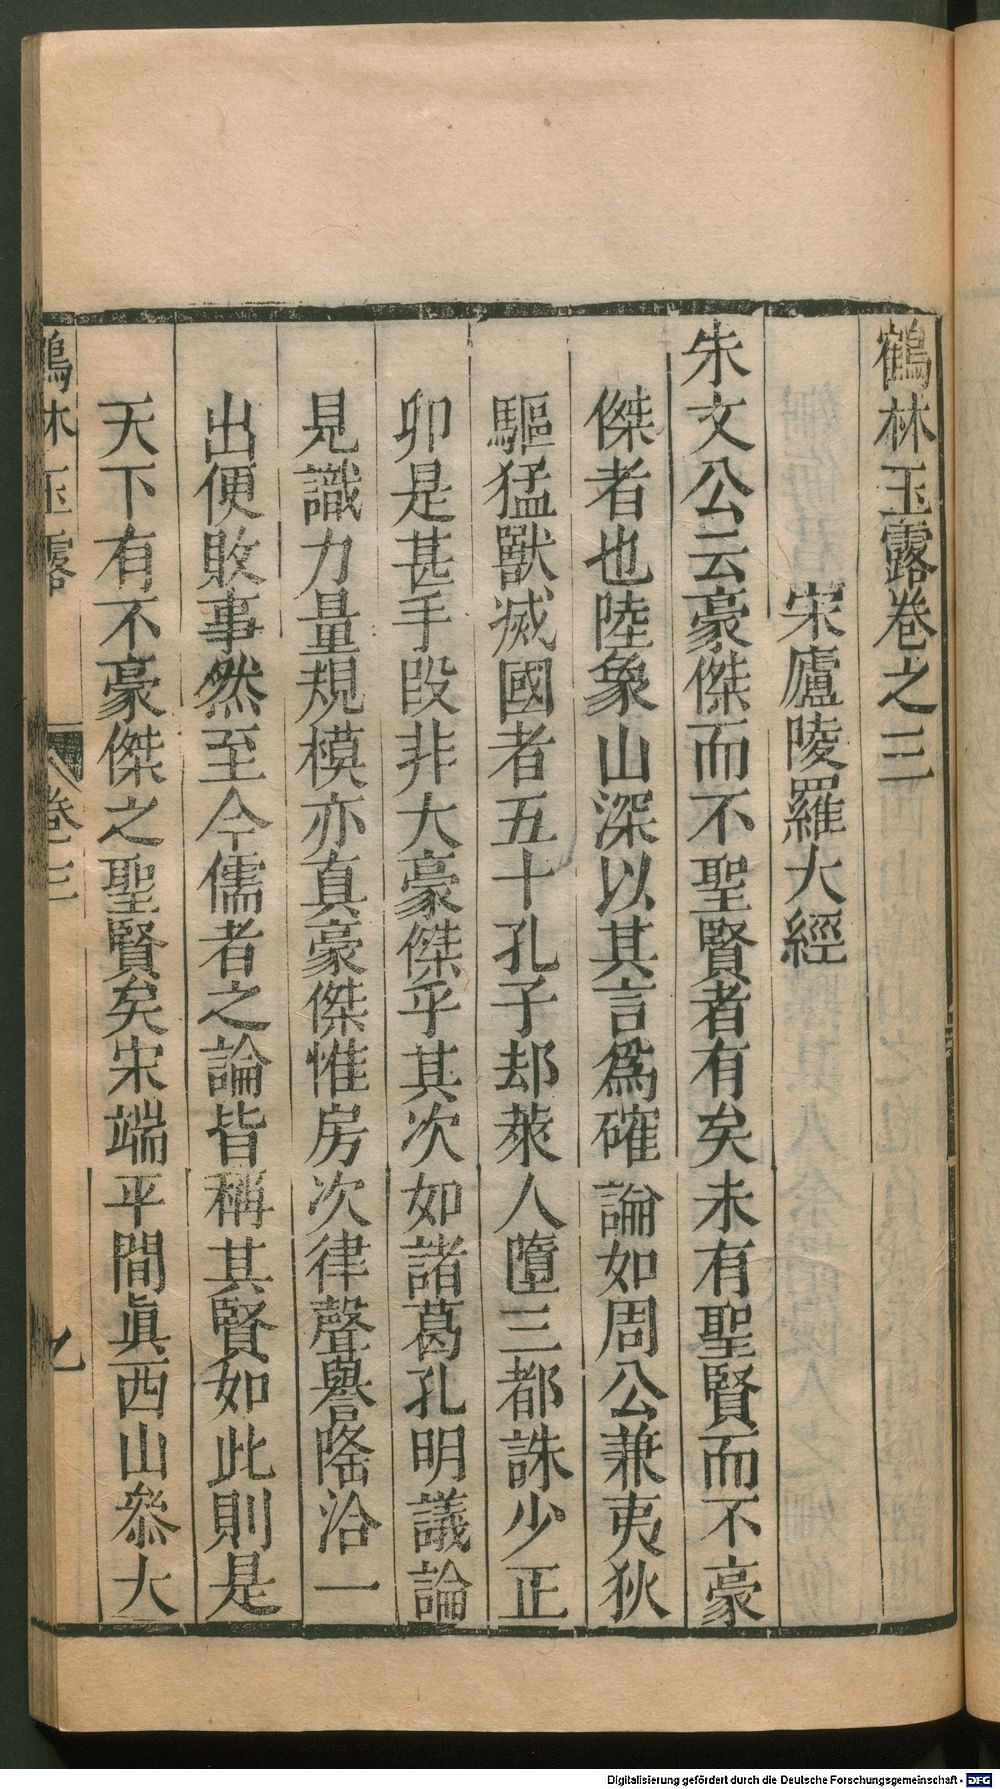 鶴林玉露卷之三
宋廬陵羅大經
朱文公云豪傑而不聖賢者有矣未有聖賢而不豪
傑者也陸象山深以其言爲確論如周公兼夷狄
驅猛獸滅國者五十孔子却萊人墮三都誅少正
卯是甚手段非大豪傑乎其次如諸葛孔明議論
見識力量規模亦真豪傑惟房次律聲譽隆洽一
出便敗事然至今儒者之論皆稱其賢如此則是
天下有不豪傑之聖賢矣宋端平間眞西山叅大
鶴林玉露 卷三
Digitalisierung gefördert durch die Deutsche Forschungsgemeinschaft - DFG